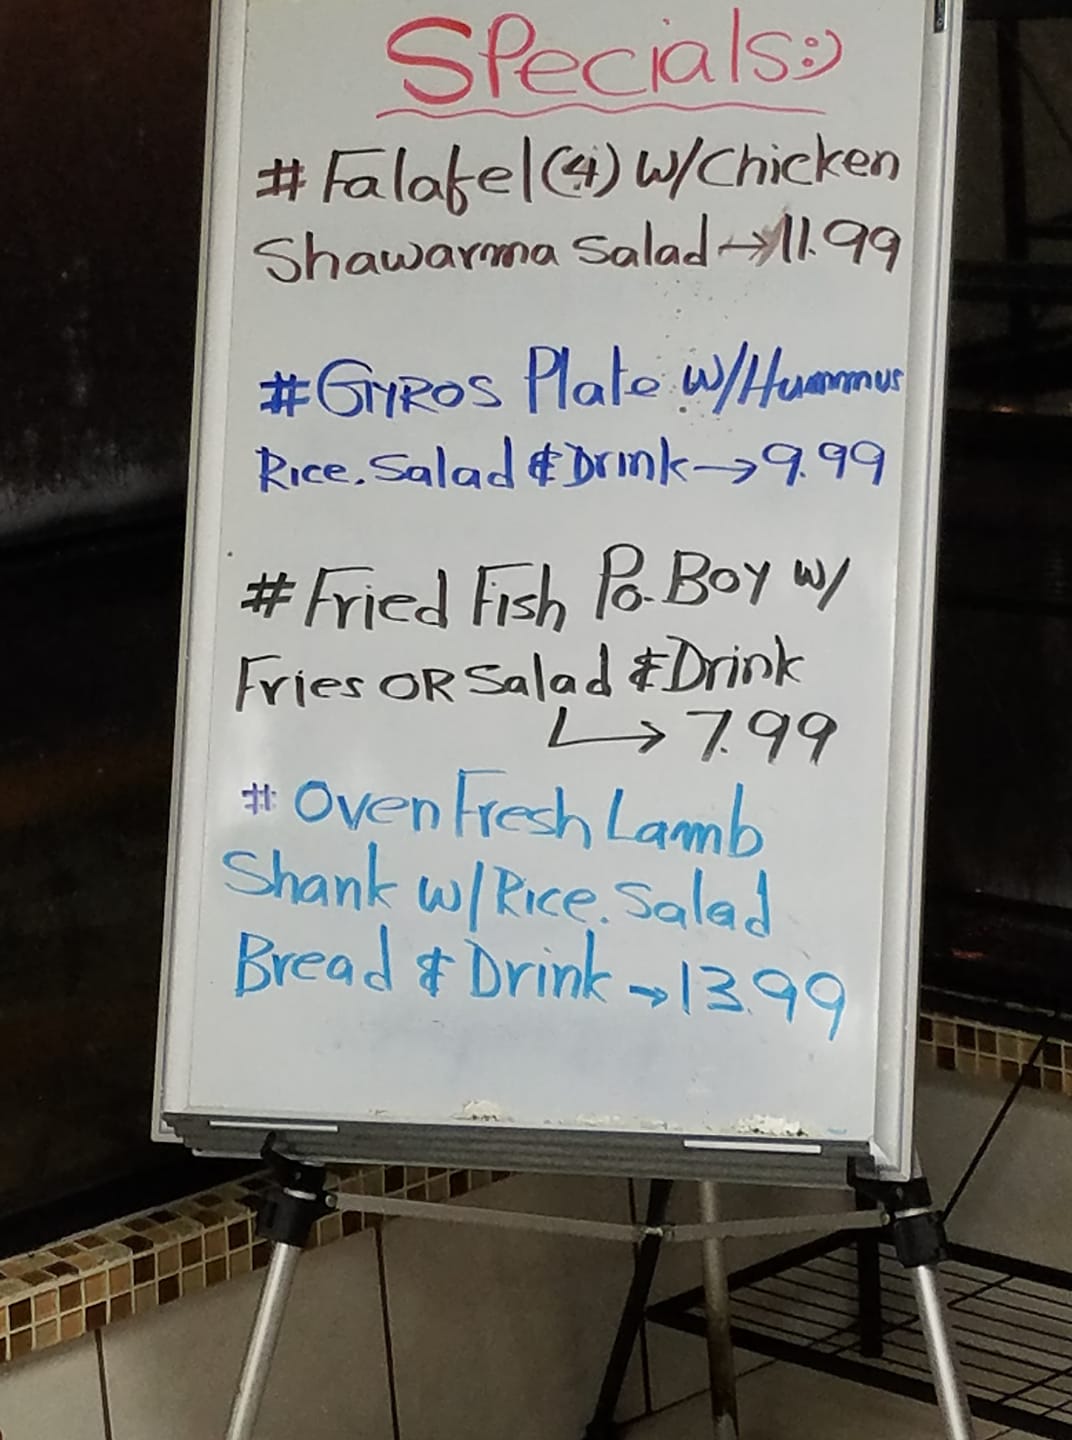 Specials:)
# Falafel (4) w/Chicken
Shawarma Salad → 11.99
# GYROS Plate w/Hummus
Rice. Salad & Drink → 9.99
# Fried Fish Po.Boy w/
Fries OR Salad & Drink
↳ 7.99
# Oven Fresh Lamb
Shank w/Rice. Salad
Bread & Drink → 13.99